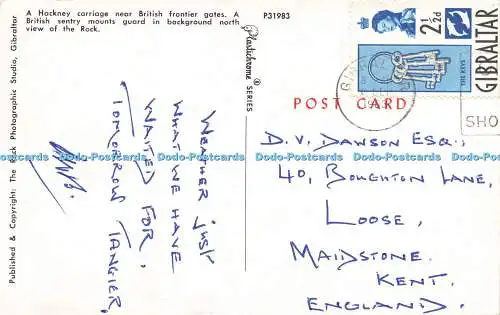 A Hackney carriage near British frontier gates. A
British sentry mounts guard in background north
view of the Rock.
P31983
Plastichrome ® SERIES
Published & Copyright: The Rock Photographic Studio, Gibraltar
POST CARD
2½d
GIBRALTAR
THE KEYS
SHO
WEATHER JUST
WHAT WE HAVE
WAITED FOR.
TOMORROW TANGIER.
D.V. DAWSON ESQ.,
40, BOUGHTON LANE,
LOOSE,
MAIDSTONE.
KENT.
ENGLAND.
Dodo-Postcards Dodo-Postcards Dodo-Postcards Dodo-Postcards Dodo-Postcards